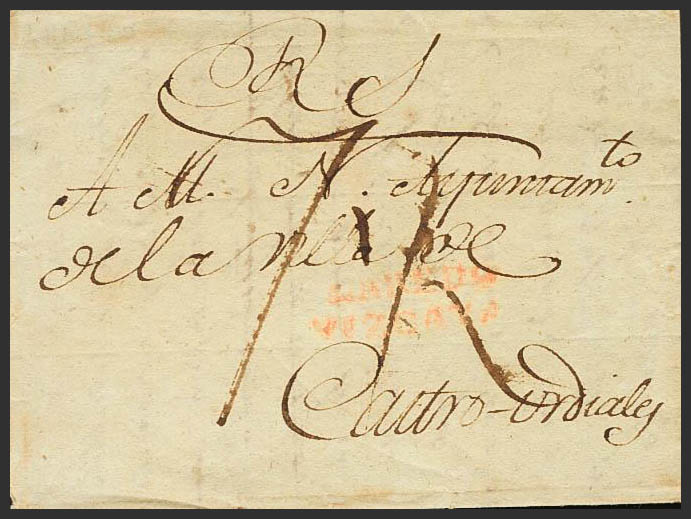 R S
A M. N. Ayuntam.to
de la villa de
LAREDO
VIZCAYA
Castro-urdiales